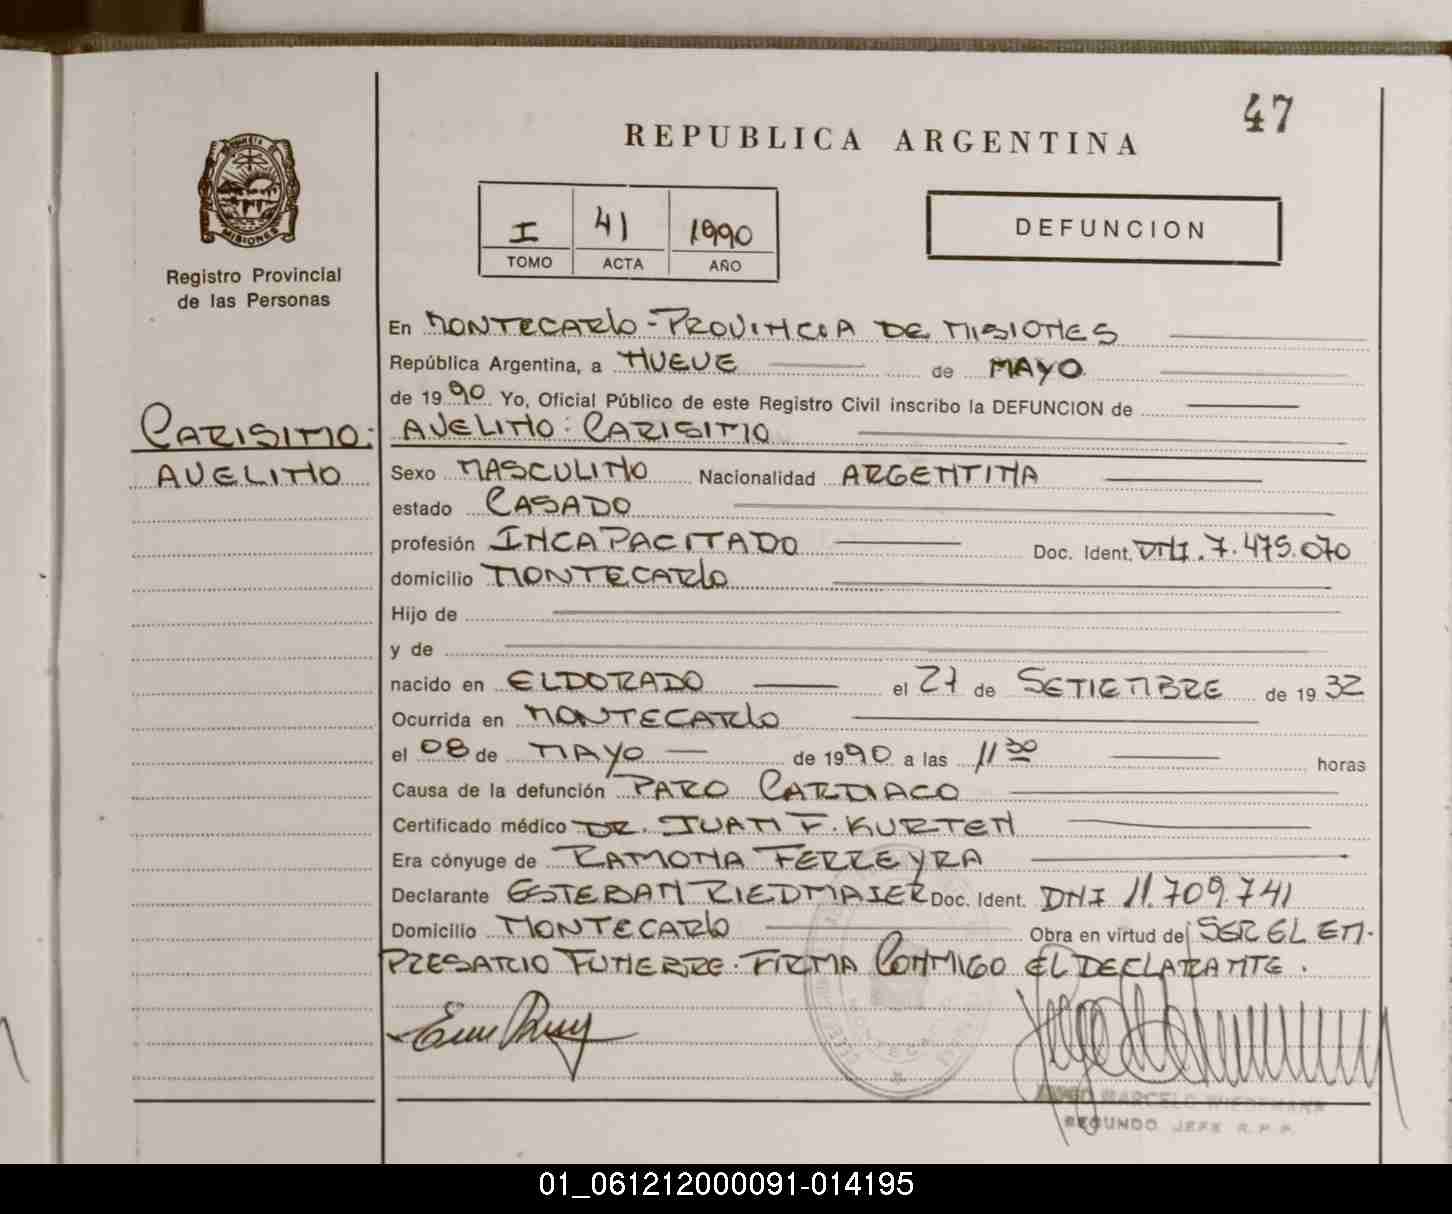 47
REPUBLICA ARGENTINA
MISIONES
Registro Provincial
de las Personas
I 41 1990
TOMO ACTA AÑO
DEFUNCION
En MONTECARLO - PROVINCIA DE MISIONES
República Argentina, a NUEVE de MAYO
de 1990 Yo, Oficial Público de este Registro Civil inscribo la DEFUNCION de
CARISIMO:
AVELINO
AVELINO: CARISIMO
Sexo MASCULINO Nacionalidad ARGENTINA
estado CASADO
profesión INCAPACITADO Doc. Ident. DNI. 7.475.070
domicilio MONTECARLO
Hijo de
y de
nacido en ELDORADO el 27 de SETIEMBRE de 1932
Ocurrida en MONTECARLO
el 08 de MAYO de 1990 a las 11 30 horas
Causa de la defunción PARO CARDIACO
Certificado médico DR. JUAN F. KURTEN
Era cónyuge de RAMONA FERREYRA
Declarante ESTEBAN RIEDMAIER Doc. Ident. DNI 11.709.741
Domicilio MONTECARLO Obra en virtud de SER EL EM-
PRESARIO FUNEBRE. FIRMA CONMIGO EL DECLARANTE.
MARCELO WIEDEMANN
SEGUNDO JEFE R.P.P.
01_061212000091-014195